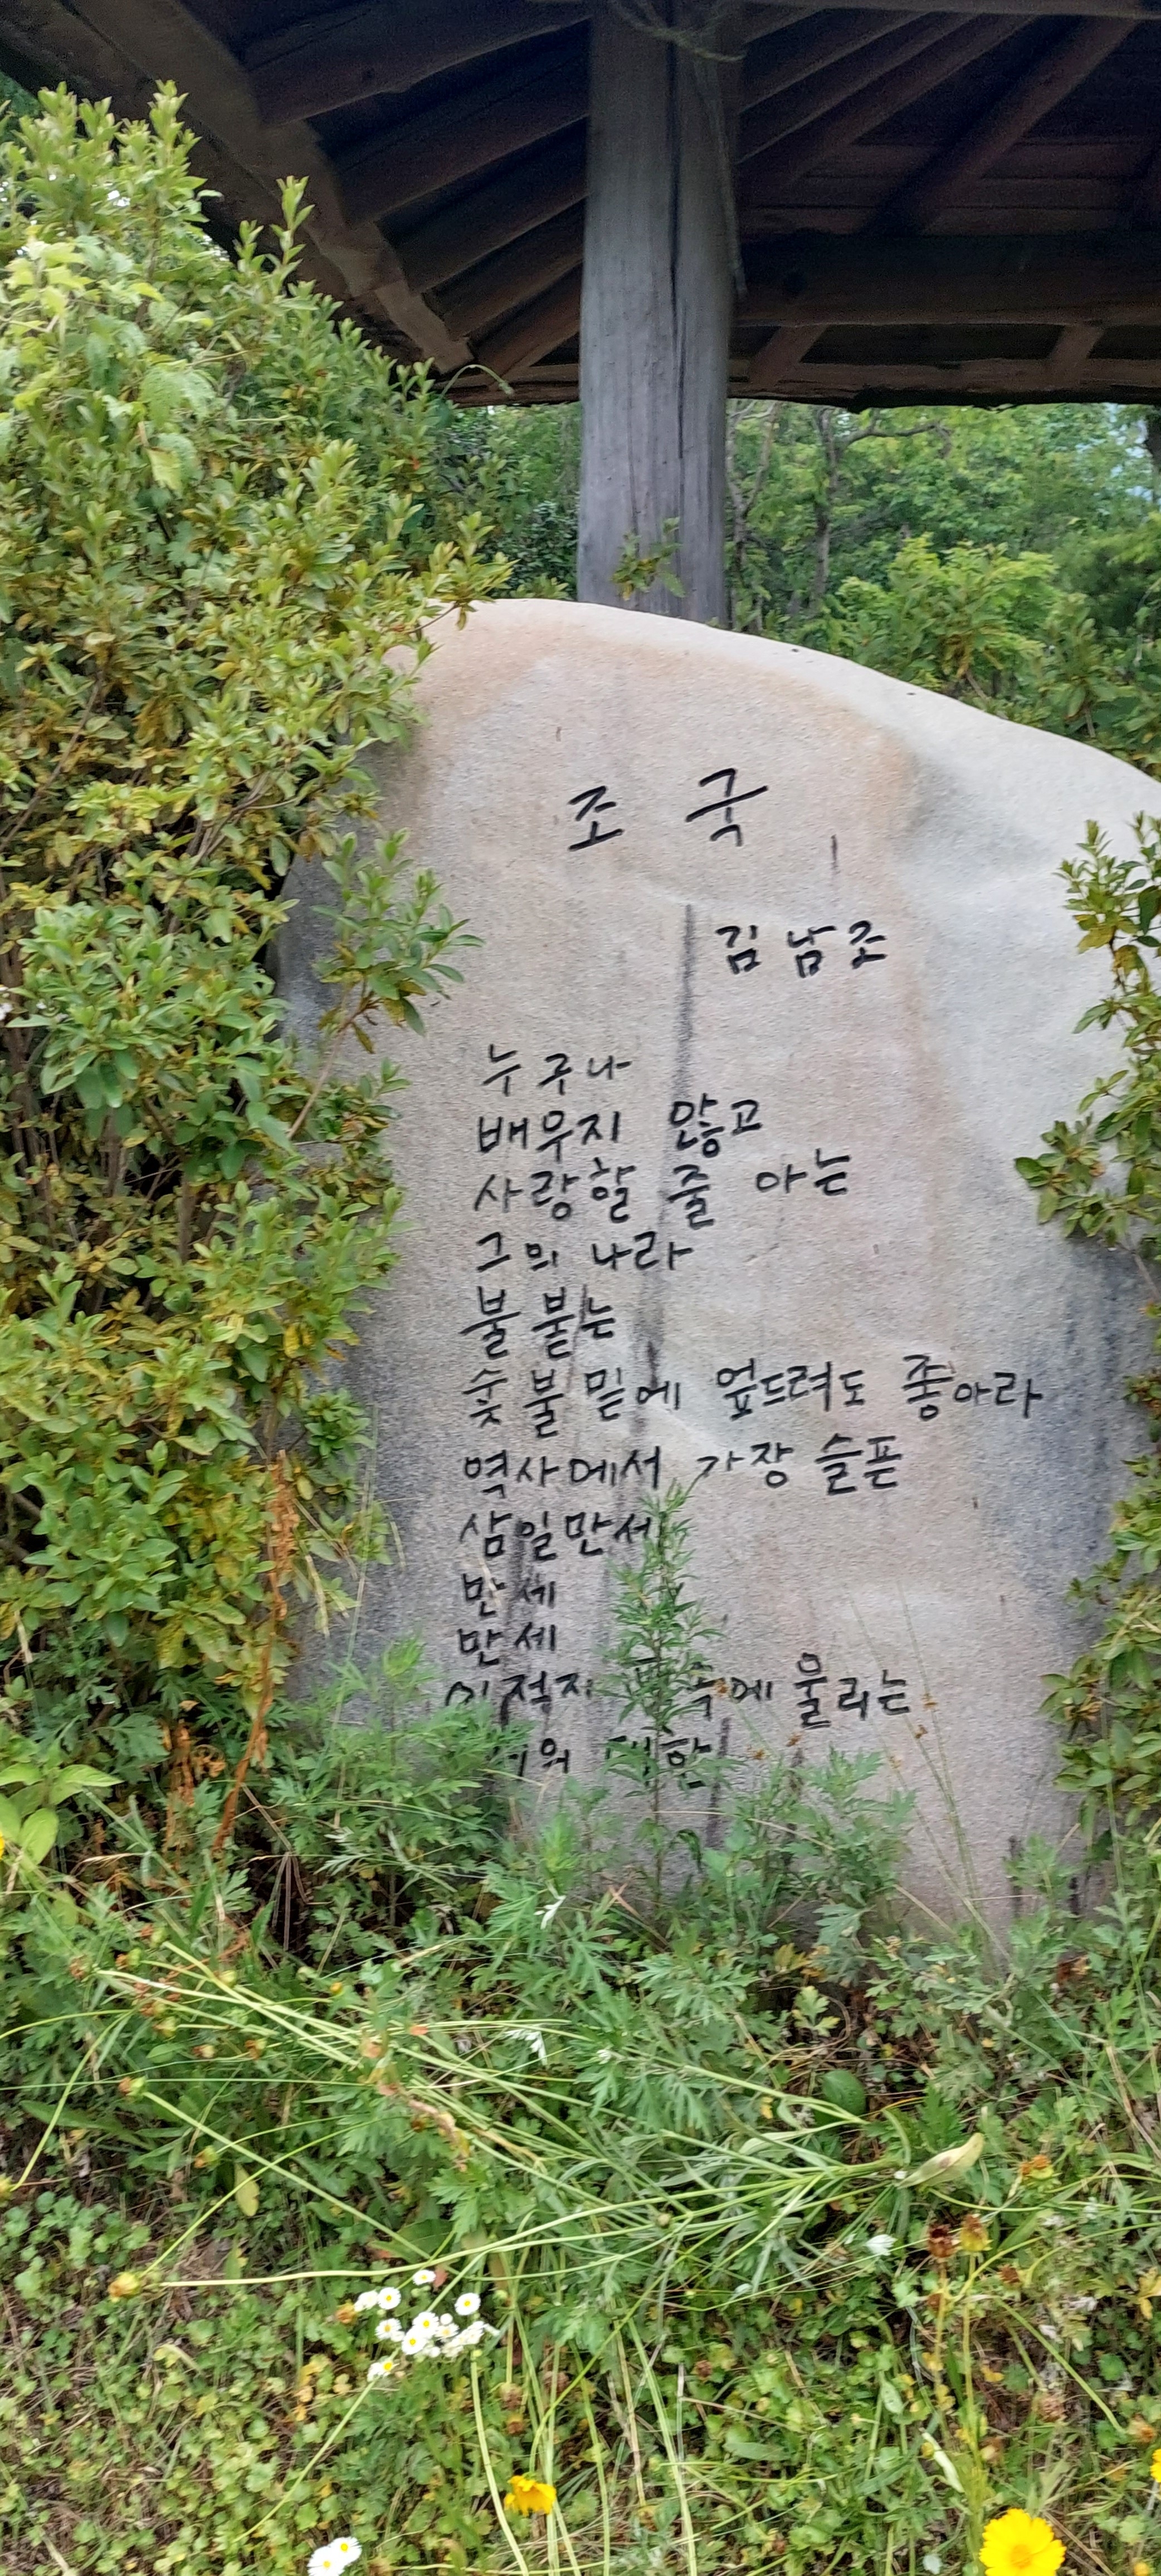 조 국
김남조
누구나
배우지 않고
사랑할 줄 아는
그의 나라
불 붙는
숯불 밑에 엎드려도 좋아라
역사에서 가장 슬픈
삼일만세
만세
만세
울리는